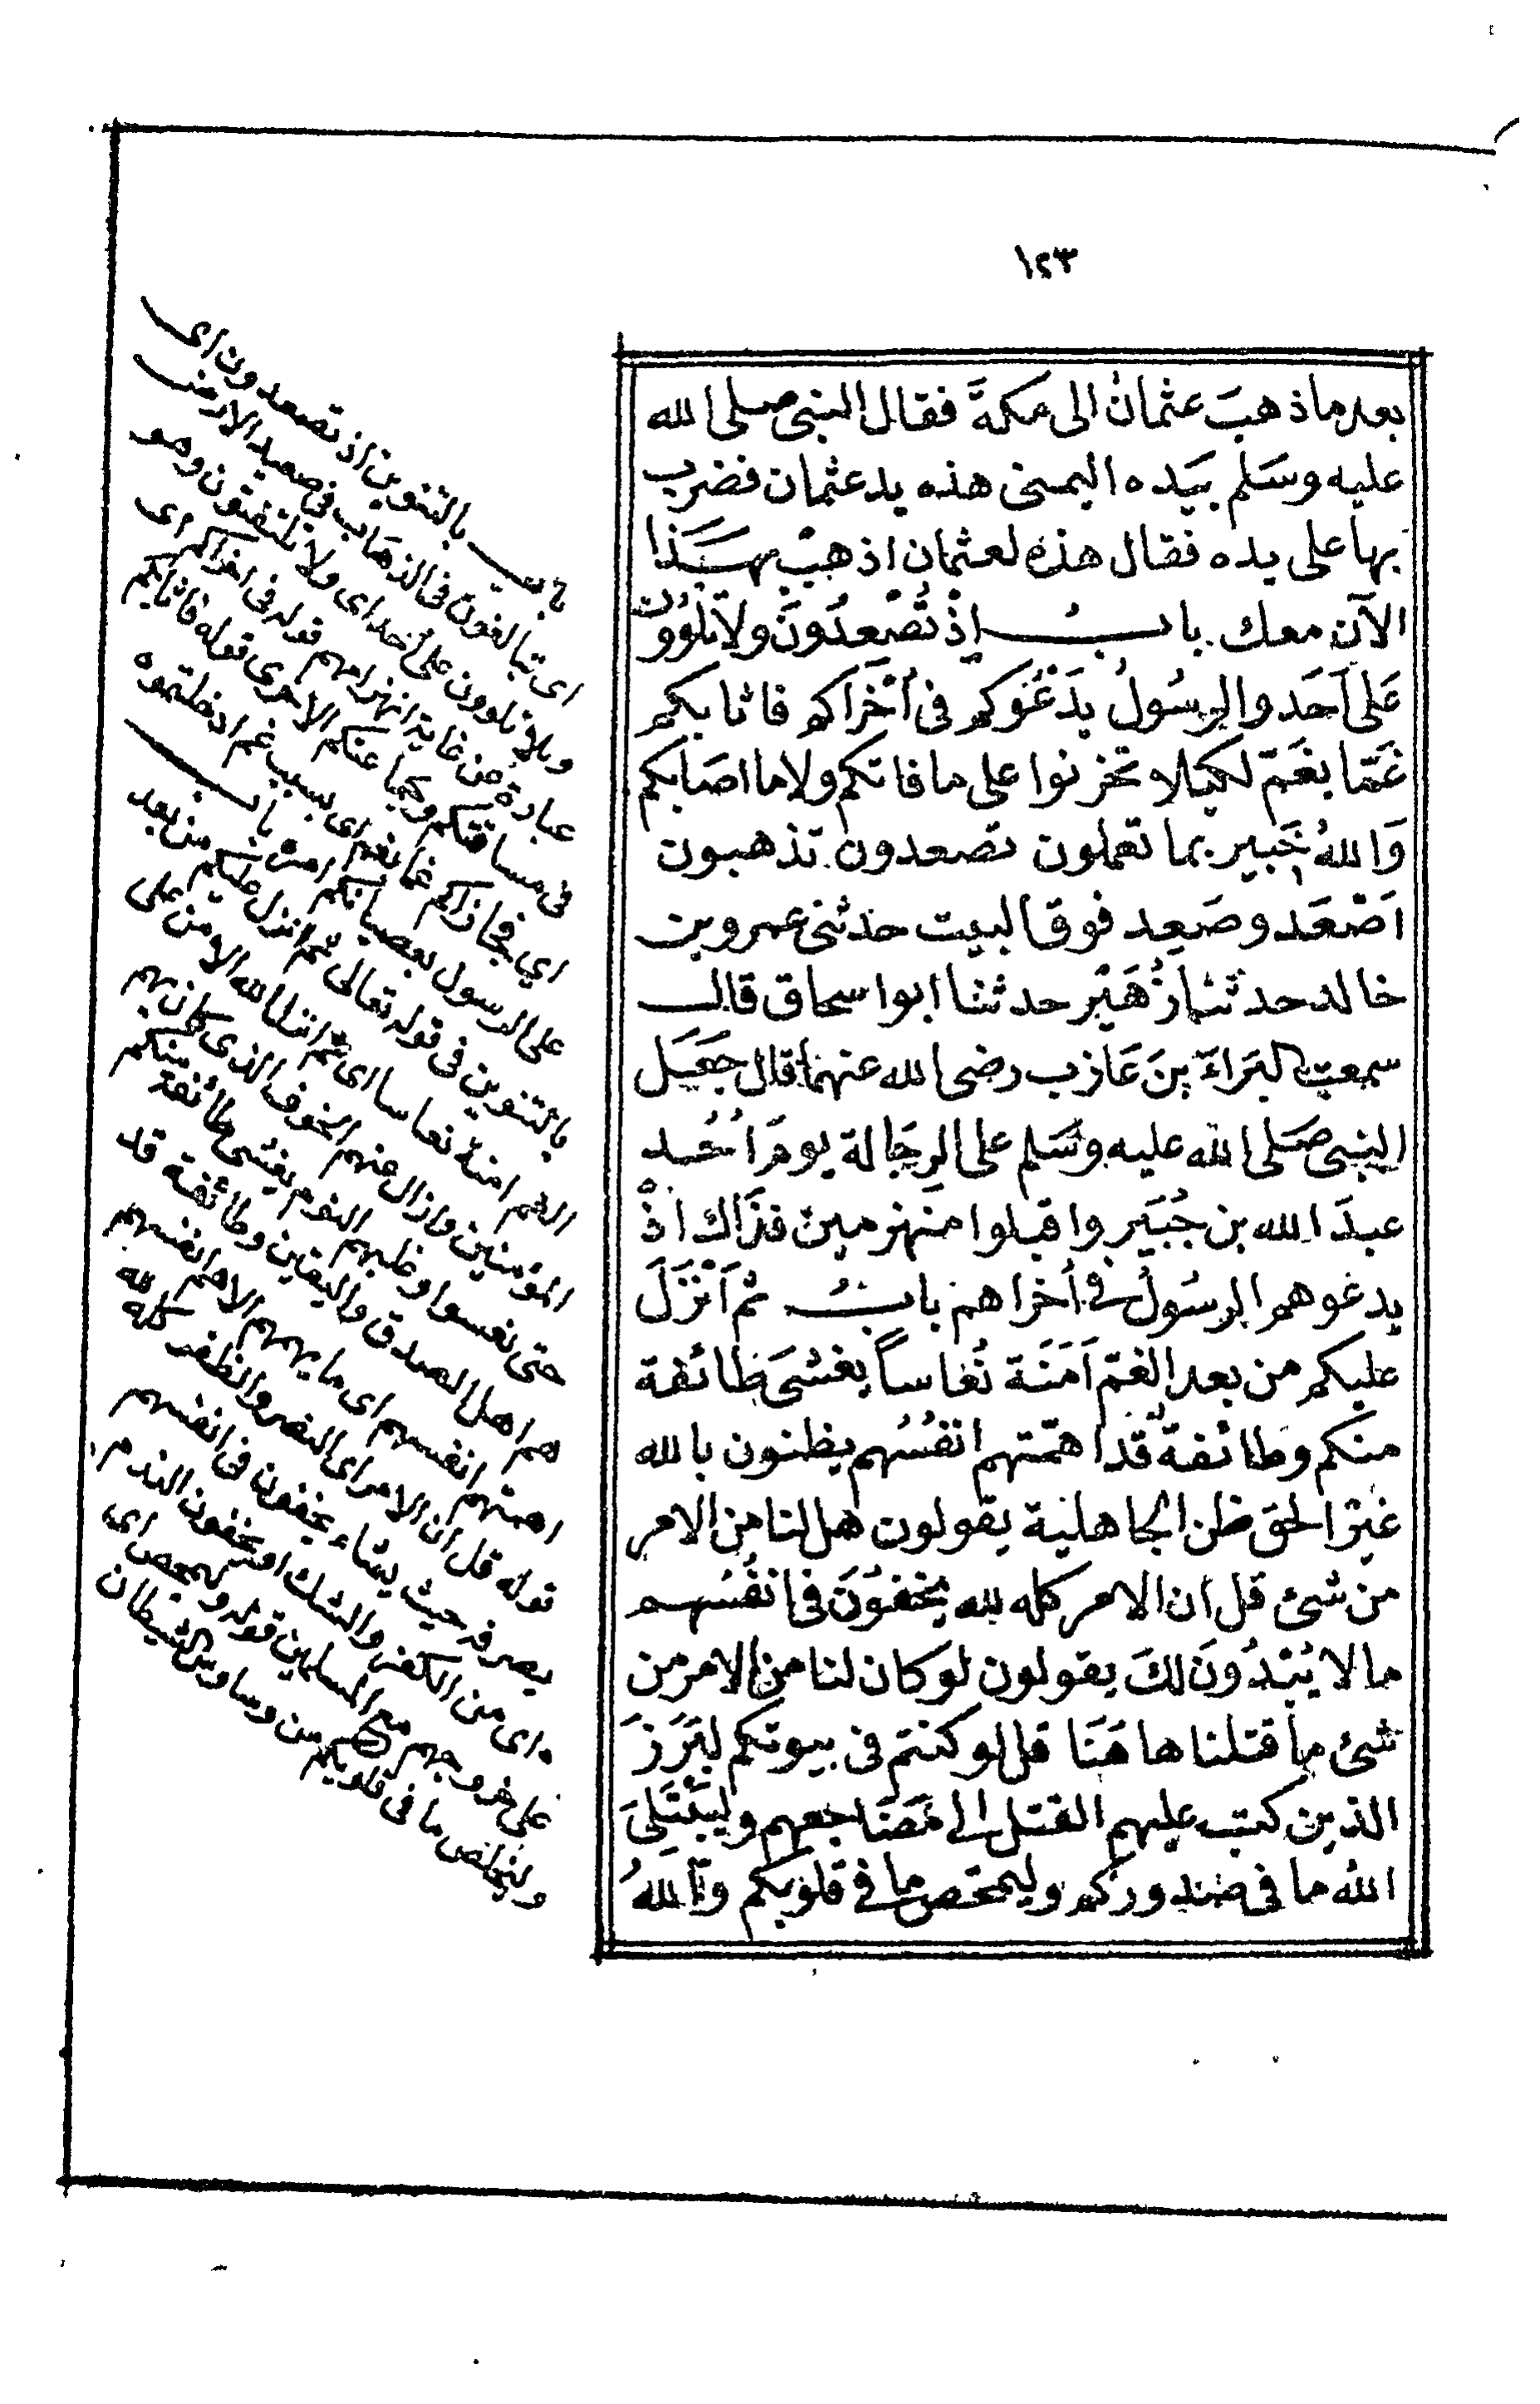 ١٢٣
بعد ما ذهبَ عثمانُ الى مكةَ فقال النبى صلى الله
عليه وسَلم بيَده اليمنى هذه يد عثمان فضرب
بها على يده فقال هذه لعثمان اذهبْ بهَـذا
الآن معك بابُ إذْ تُصْعِدُونَ ولا تلوُونَ
عَلى اَحَد والرسُولُ يدْعُوكم فى اُخْراكم فاثابكم
غَمّا بغَمّ لكيلا تحزنوا على ما فاتكم ولا ما اصَابكم
وَاللهُ خَبير بما تعملون تصعدون تذهبون
اَصْعَد وصَعِد فوق البيت حدثنى عمرو بن
خالد حدثنا زُهَيْر حدثنا ابو اسحاق قال
سمعت البَرَاءَ بنَ عَازب رضى الله عنهما قال جَعَلَ
النبى صَلى الله عليه وسَلم على الرجَالة يومَ اُحُد
عبدَ الله بن جُبَير واقبلوا منهزمين فذَاك اذْ
يدعوهم الرسُولُ في اُخراهم بابُ ثم اَنْزَلَ
عليكم من بعد الغمّ اَمَنَة نُعَاساً يغشَى طَائفة
منكم وطائفةٌ قد اهمّتهم انفُسُهم يظنون بالله
غيرَ الحق ظن الجاهلية يقولون هل لنا من الامر
من شئ قل ان الامر كله لله يُخفوُنَ فى انفُسُهم
ما لا يُبْدُونَ لكَ يقولون لو كان لنا من الامر من
شئ ما قتلنا هاهُنَا قل لو كنتم فى بيوتكم لبَرَزَ
الذين كتب عليهم القتل الى مَضَاجعهم وليَبْتَلِىَ
اللهُ ما فى صُدوركم وليمحّص ما في قلوبكم وَاللهُ
باب بالتنوين اذ تصعدون اى
اى تبالغون فى الذهاب فى صعيد الارض
ولا تلوون على أحد اى ولا تلتفتون وهو
عبارة عن غاية انهزامهم قوله فى اخراكم اى
فى ساقتكم وجماعتكم الاخرى قوله فاثابكم
اي فجازاكم غما بغم اى بسبب غم اذقتموه
على الرسول بعصيانكم امره باب
بالتنوين فى قوله تعالى ثم انزل عليكم من بعد
الغم امنة نعاسا اى ثم انزل الله الامن على
المؤمنين وازال عنهم الخوف الذى كان بهم
حتى نعسوا وغلبهم النوم يغشى طائفة منكم
هم اهل الصدق واليقين وطائفة قد
اهمتهم انفسهم اى ما يهمهم الا هم انفسهم
قوله قل ان الامر اى النصر والظفر كله لله
يصرفه حيث يشاء يخفون فى انفسهم
اى من الكفر والشك او يخفون الندم
على خروجهم مع المسلمين قوله وليمحص اى
وليخلص ما فى قلوبكم من وساوس الشيطان